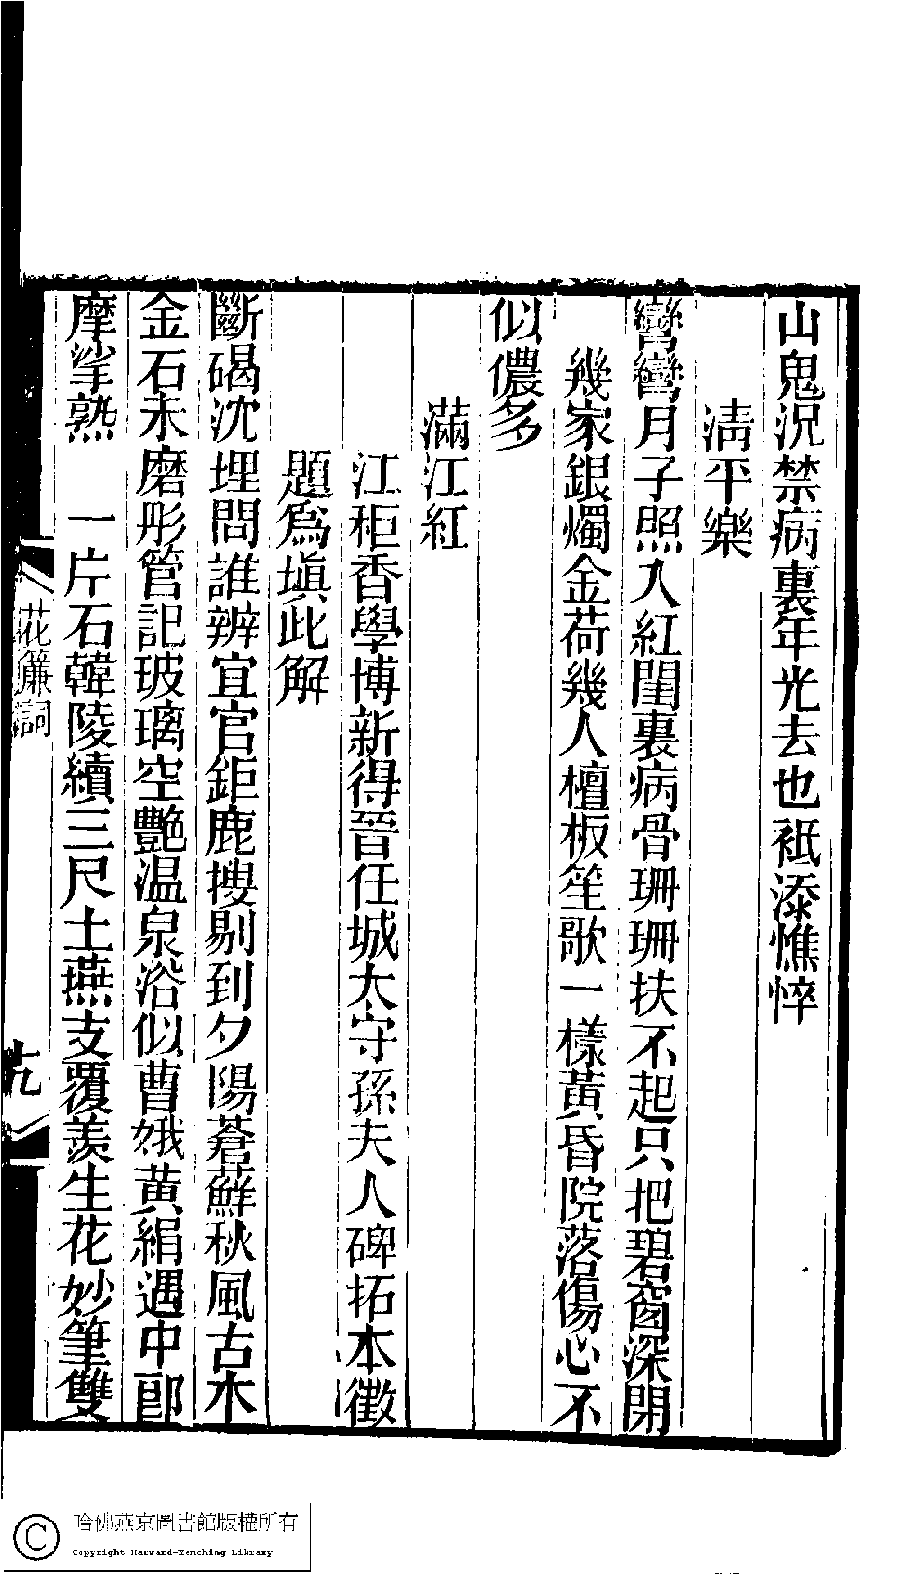 山鬼況禁病裏年光去也祗添憔悴
清平樂
彎彎月子照入紅閨裏病骨珊珊扶不起只把碧窗深閉
幾家銀燭金荷幾人檀板笙歌一樣黃昏院落傷心不
似儂多
滿江紅
江秬香學博新得晉任城太守孫夫人碑拓本徵
題爲塡此解
斷碣沈埋問誰辨宜官鉅鹿搜剔到夕陽蒼蘚秋風古木
金石未磨彤管記玻璃空豔温泉浴似曹娥黃絹遇中郎
摩挲熟　一片石韓陵續三尺土燕支覆羨生花妙筆雙
花簾詞
九
哈佛燕京圖書館版權所有
Copyright Harvard-Yenching Library